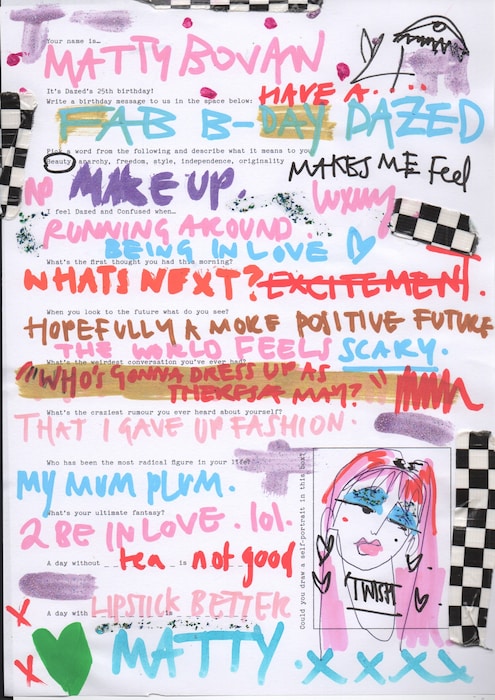 Your name is…
MATTY BOVAN
It's Dazed's 25th birthday!
Write a birthday message to us in the space below:
HAVE A.....
FAB B-DAY DAZED
Pick a word from the following and describe what it means to you
Beauty, anarchy, freedom, style, independence, originality
MAKES ME FEEL
NO MAKE UP. luxury
I feel Dazed and Confused when…
RUNNING AROUND.
BEING IN LOVE
What's the first thought you had this morning?
WHATS NEXT? EXCITEMENT.
When you look to the future what do you see?
HOPEFULLY A MORE POSITIVE FUTURE
THE WORLD FEELS SCARY.
What's the weirdest conversation you've ever had?
"WHO'S GONNA DRESS UP AS
THERESA MAY?"
What's the craziest rumour you ever heard about yourself?
THAT I GAVE UP FASHION.
Who has been the most radical figure in your life?
MY MUM PLUM.
What's your ultimate fantasy?
2 BE IN LOVE. lol.
A day without tea is not good
A day with LIPSTICK is BETTER
Could you draw a self-portrait in this box?
'TWISH
X MATTY. X X X X
X